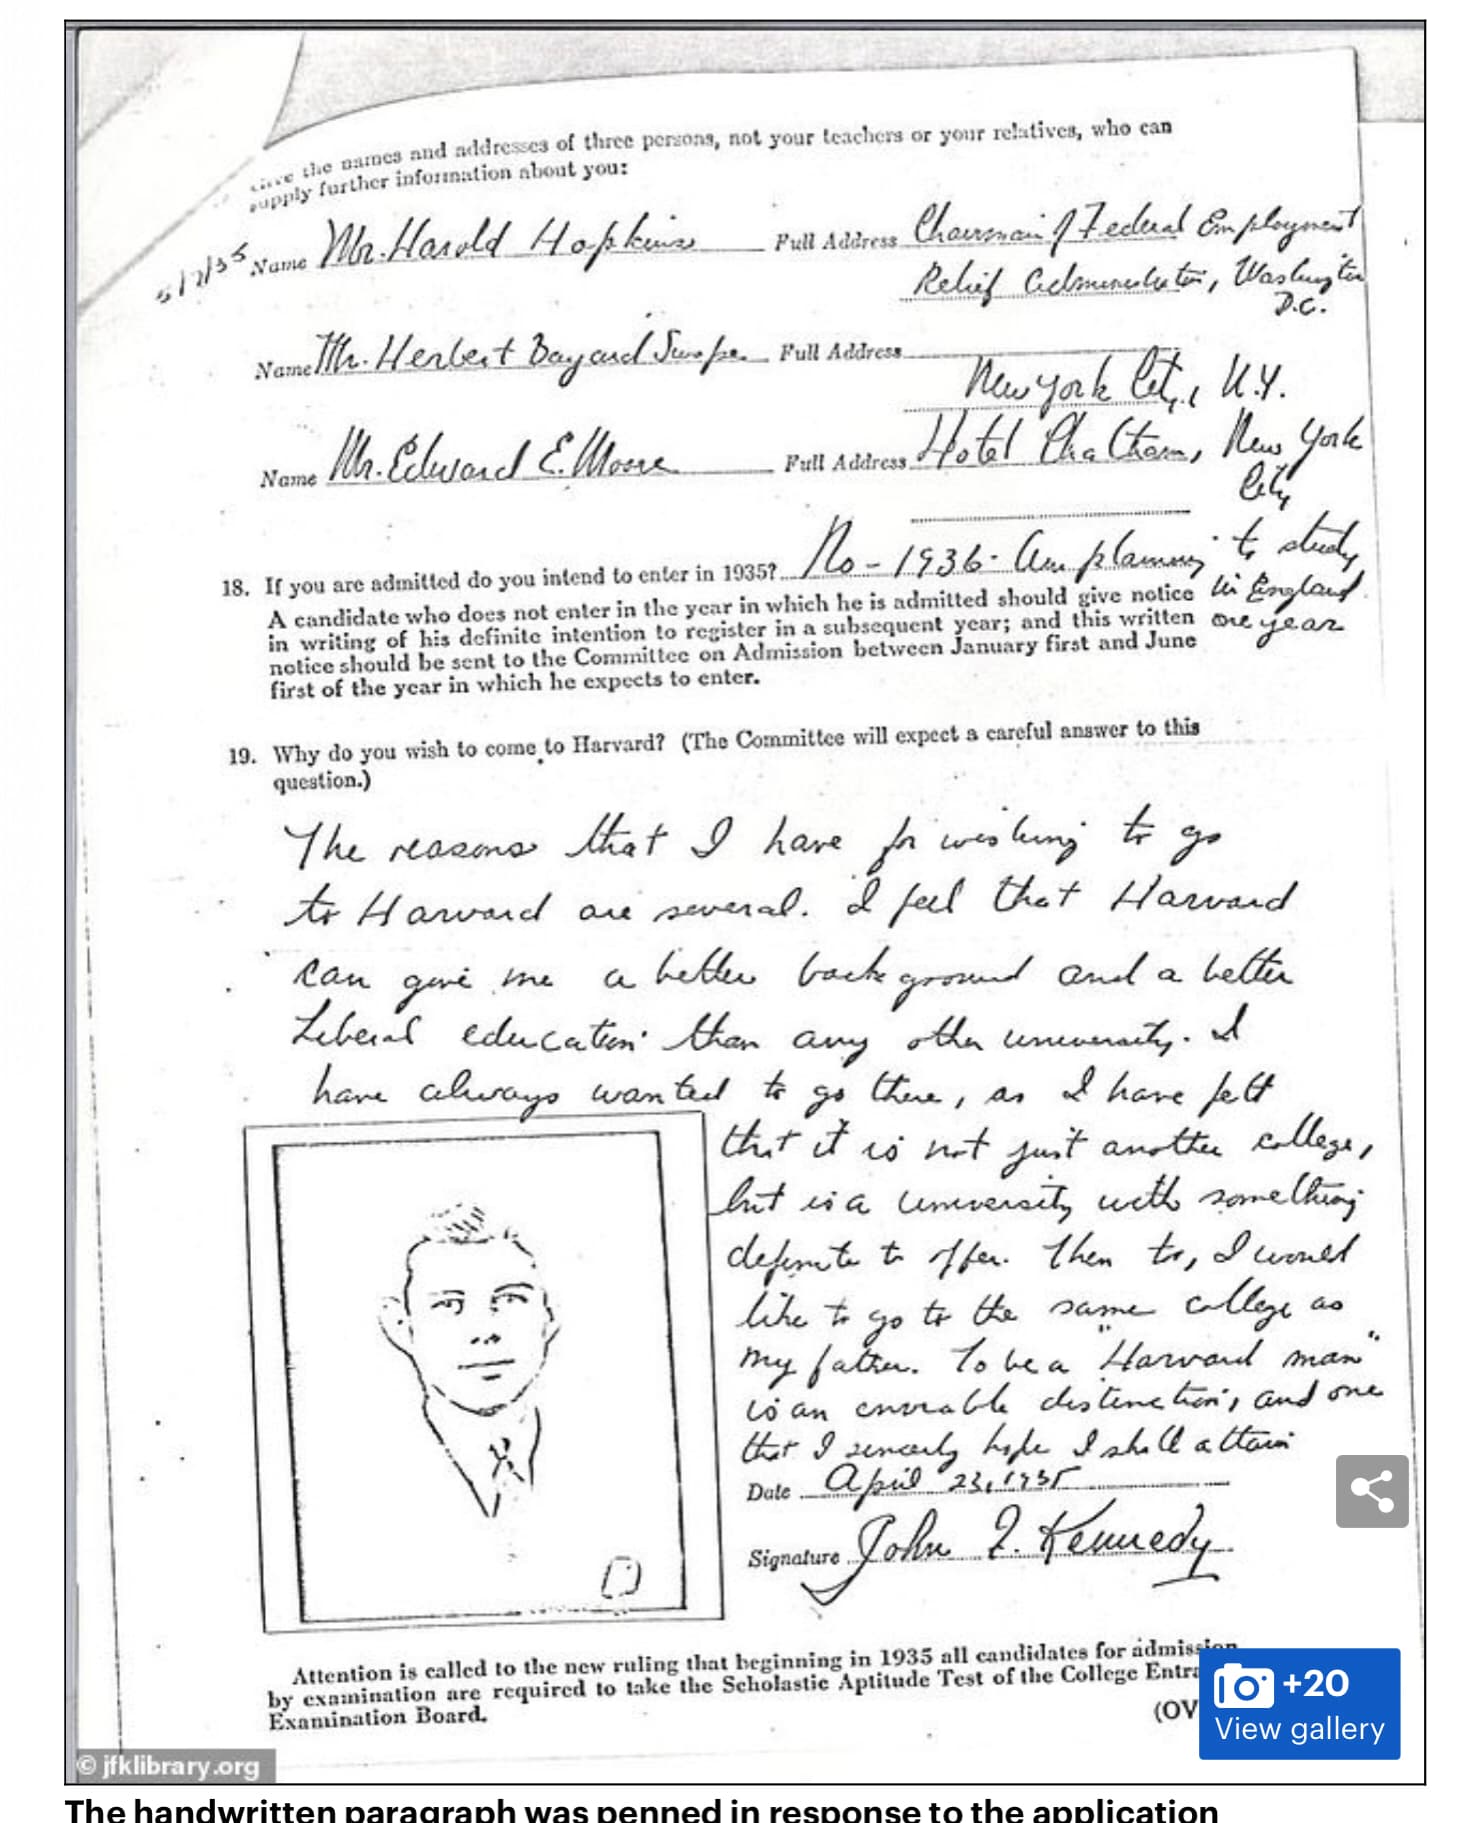 the names and addresses of three persons, not your teachers or your relatives, who can
supply further information about you:
5/7/35 Name Mr. Harold Hopkins Full Address Chairman of Federal Employment
Relief Administration, Washington
D.C.
Name Mr. Herbert Bayard Swope Full Address
New York City, N.Y.
Name Mr. Edward E. Moore Full Address Hotel Chatham, New York
City
18. If you are admitted do you intend to enter in 1935? No - 1936. Am planning to study
in England
one year
A candidate who does not enter in the year in which he is admitted should give notice
in writing of his definite intention to register in a subsequent year; and this written
notice should be sent to the Committee on Admission between January first and June
first of the year in which he expects to enter.
19. Why do you wish to come to Harvard? (The Committee will expect a careful answer to this
question.)
The reasons that I have for wishing to go
to Harvard are several. I feel that Harvard
can give me a better background and a better
liberal education than any other university. I
have always wanted to go there, as I have felt
that it is not just another college,
but is a university with something
definite to offer. Then too, I would
like to go to the same college as
my father. To be a "Harvard man"
is an enviable distinction, and one
that I sincerely hope I shall attain
Date April 23, 1935
Signature John F. Kennedy
Attention is called to the new ruling that beginning in 1935 all candidates for admission
by examination are required to take the Scholastic Aptitude Test of the College Entra
Examination Board.
(OV
+20
View gallery
© jfklibrary.org
The handwritten paragraph was penned in response to the application